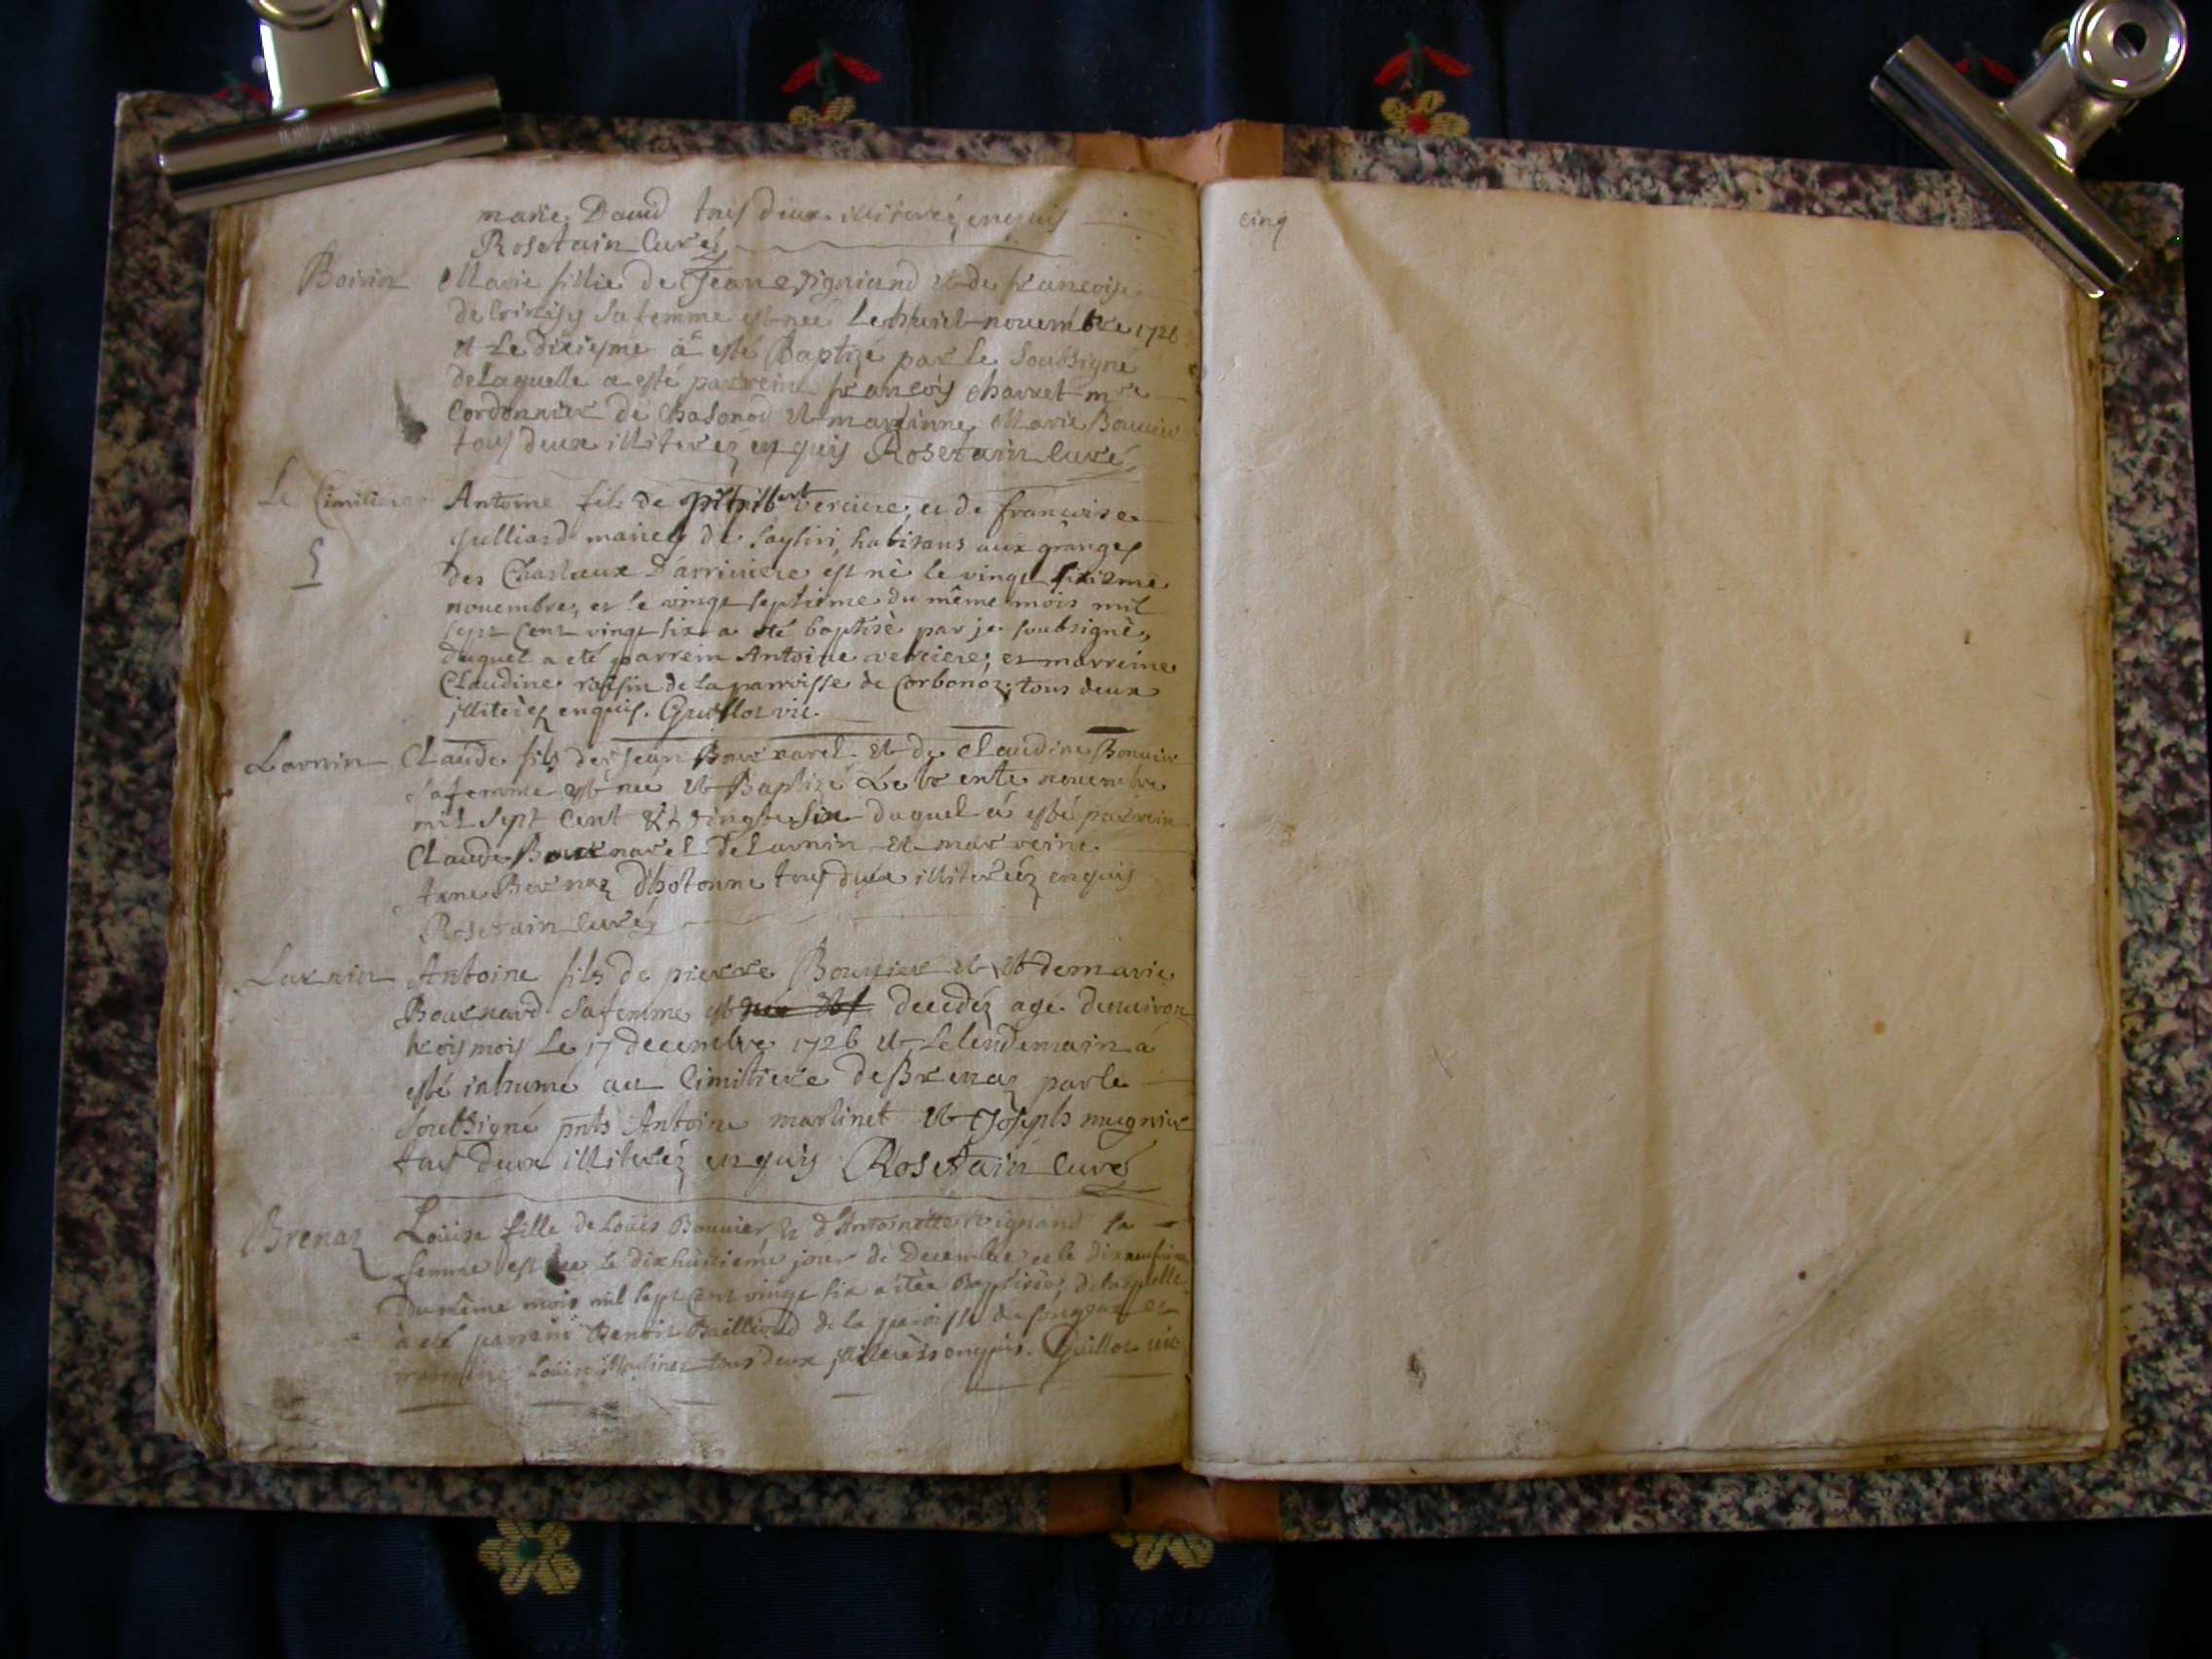 marie Daud tous deux illiterez enquis
Rosetain Curé
Boirin Marie fillie de Jean Vigniand et de francoise
de Crinisy sa femme est née Le huict novembre 1726
et Le dixiesme a esté Baptizé par le Soubsigné
de Laquelle a esté parrein francois Charvet mre
Cordonnier de Chasonod et marrinne Marie Bouvier
tous deux illiterez enquis Rosetain Curé
Le Cimitiere Antoine fils de philibert verciere, et de francoise
Julliard mariez de habitans aux granges
des Chasteaux D'arriviere est né le vingt sixieme
novembre, et le vingt septieme du même mois mil
sept cent vingt six a eté baptisé par je soubsigné,
duquel a eté parrein Antoine verciere, et marreine
Claudine raffin de la parroisse de Corbonoz, tous deux
jlliterez enquis. Guillot vic.
Lavnin Claude fils de Jean Bournarel et de Claudine Bonuier
sa femme est né et Baptizé Le trente novembre
mil sept Cent et vingt Six duquel a esté parrein
Claude Bournarel de Lavnin et marreine
Anne Bernaz d'hotonne tous deux illiterez enquis
Rosetain Curé
Lavnin Antoine fils de pierre Bouvier et et de marie
Bournard sa femme est né et decedéz agé denviron
trois mois Le 17 decembre 1726 et Lelendemain a
esté inhumé au Cimitiere de Brenaz par le
Soubsigné pnts Antoine martinet et Joseph mugnier
tous deux illiterez enquis Rosetain Curé
Brenaz Loüise fille de Loüis Bouvier, et d'Antoinette Vignand sa
femme est née le dixhuitieme jour de Decembre et le dixneufvieme
Du même mois mil sept cent vingt six a etée Baptisée, de laquelle
a eté parrein Benoit Brilliard de la paroisse de Songeux et
marreine Loüise Martinet tous deux jlliterés enquis. Guillot vic
cinq